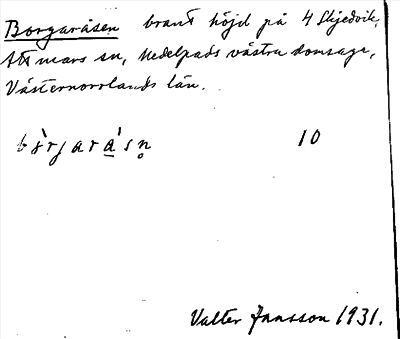 Borgaråsen brant höjd på 4 Slijedvik,
Attmars sn, Medelpads västra domsaga,
Västernorrlands län.
bòrjaråˈsn̥ 10
Valter Jansson 1931.